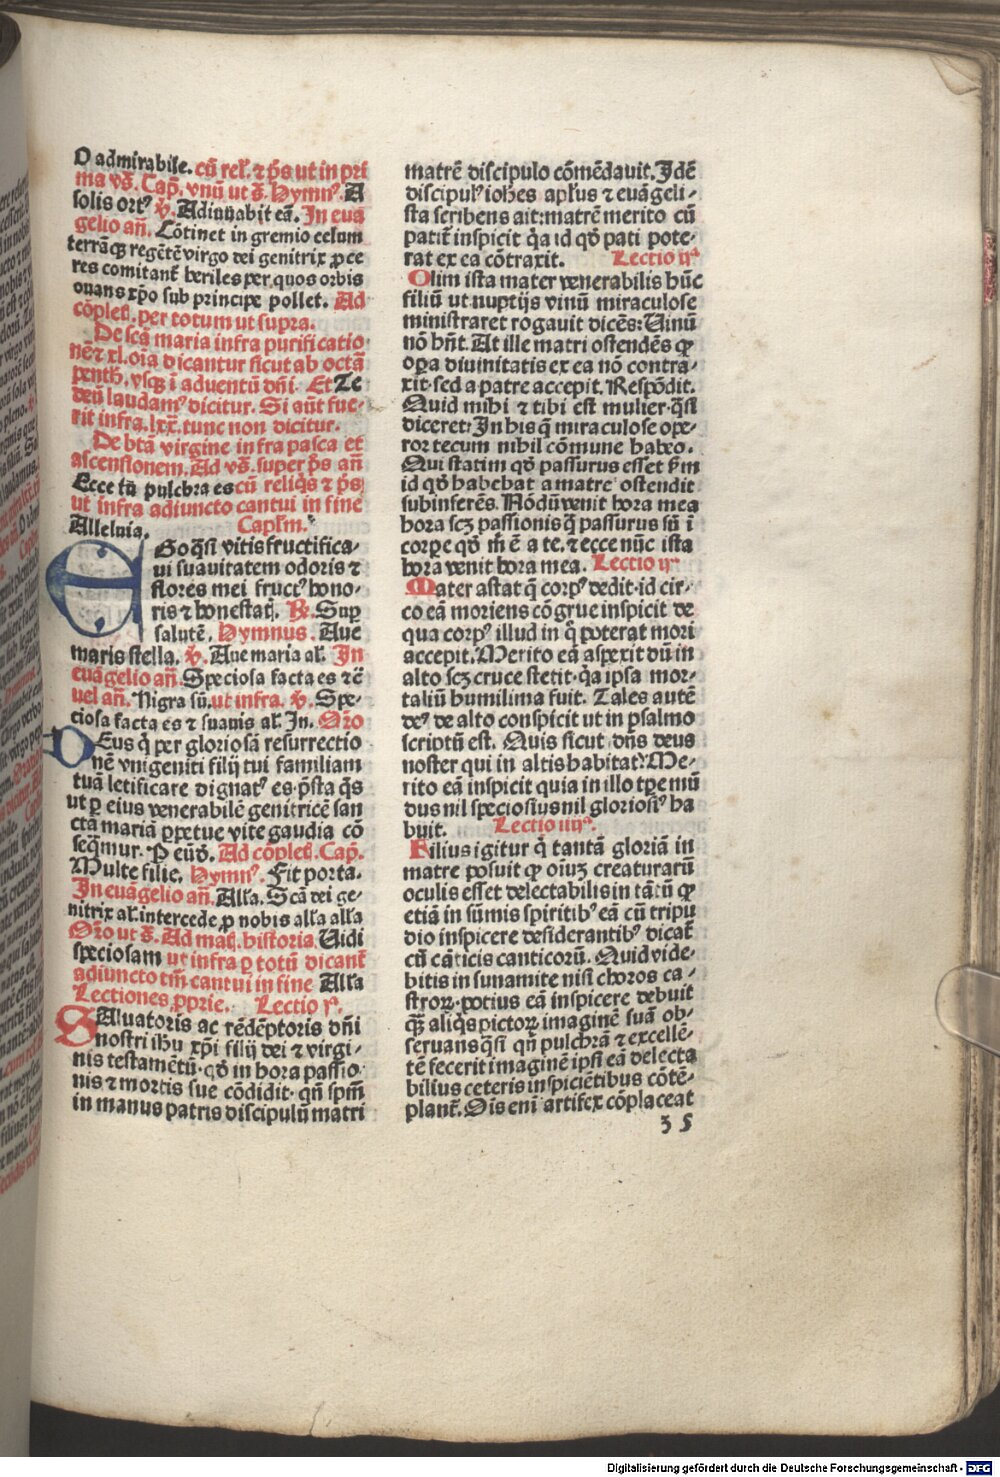 O admirabile. cū reł. ⁊ p̄s ut in pri
ma vs̄. Cap̄. vnū ut s̄. Hymnꝰ. A
solis ortꝰ v̄. Adiuuabit eā. In euā
gelio añ. Cōtinet in gremio celum
terrāqꝫ regētē virgo dei genitrix ꝓce
res comitant̄ heriles per quos orbis
ouans xp̄o sub principe pollet. Ad
cōpleṫ. per totum ut supra.
De scā maria infra purificatio
nē ⁊ xl. oīa dicantur sicut ab octā
penth̄. vsqꝫ ī aduentū dn̄i. Et Te
deū laudamꝰ dicitur. Si aūt fue-
rit infra .lxx̄. tunc non dicitur.
De btā virgine infra pasca et
ascensionem. Ad vs̄. super p̄s añ
Ecce tū pulchra es cū reliq̄s ⁊ p̄s
ut infra adiuncto cantui in fine
Alleluia. Capłm.
EGo q̄si vitis fructifica-
ui suauitatem odoris ⁊
flores mei fructꝰ hono-
ris ⁊ honestaṫ. R̄. Suꝑ
salutē. Hymnus. Aue
maris stella. v̄. Aue maria ał. In
euāgelio añ. Speciosa facta es ⁊ c̄
uel añ. Nigra sū. ut infra. v̄. Spe-
ciosa facta es ⁊ suauis ał. In. Oro
DEus q̄ per gloriosā resurrectio
nē vnigeniti filij tui familiam
tuā letificare dignatꝰ es. p̄sta q̄s
ut ꝑ eius venerabilē genitricē san
ctā mariā ꝑpetue vite gaudia cō
seq̄mur. P eūd̄. Ad cōpleṫ. Cap̄.
Multe filie. Hymnꝰ. Fit porta.
In euāgelio añ. Ałła. Scā dei ge-
nitrix ał. intercede ꝓ nobis ałła ałła
Oro ut s̄. Ad maṫ. historia Uidi
speciosam ut infra ꝑ totū dicant̄
adiuncto tm̄ cantui in fine Ałła
Lectiones ꝓprie. Lectio jᵃ.
SAluatoris ac redēptoris dn̄i
nostri ihu xp̄i filij dei ⁊ virgi-
nis testamētū. qd̄ in hora passio
nis ⁊ mortis sue cōdidit. qn̄ spm̄
in manus patris discipulū matri
matrē discipulo cōmēdauit. Idē
discipulꝰ iohēs apłus ⁊ euāgeli-
sta scribens ait: matrē merito cū
patit̄ inspicit q̄a id qd̄ pati pote-
rat ex ea cōtraxit. Lectio ijᵃ
Olim ista mater venerabilis hūc
filiū ut nuptijs vinū miraculose
ministraret rogauit dicēs: Uinū
nō hn̄t. At ille matri ostendēs ꝙ
oꝑa diuinitatis ex ea nō contra-
xit. sed a patre accepit. Respōdit.
Quid mihi ⁊ tibi est mulier. q̄si
diceret: In his q̄ miraculose ope-
ror tecum nihil cōmune habeo.
Qui statim qd̄ passurus esset f̄m
id qd̄ habebat a matre ostendit
subinferēs. Nōdū venit hora mea
hora scꝫ passionis q̄ passurus sū ī
corpe qd̄ m̄ ē a te. ⁊ ecce nūc ista
hora venit hora mea. Lectio ijᵃ
Mater astat q̄ corpꝰ dedit. id cir-
co eā moriens cōgrue inspicit de
qua corpꝰ illud in q̄ poterat mori
accepit. Merito eā aspexit dū in
alto scꝫ cruce stetit. q̄a ipsa mor-
taliū humilima fuit. Tales autē
deꝰ de alto conspicit ut in psalmo
scriptū est. Quis sicut dn̄s deus
noster qui in altis habitat? Me-
rito eā inspicit quia in illo tꝑe mū
dus nil speciosius nil gloriosiꝰ ha
buit. Lectio iiijᵃ.
Filius igitur q̄ tantā gloriā in
matre posuit ꝙ oīuꝫ creaturarū
oculis esset delectabilis in tātū ꝙ
etiā in sūmis spiritibꝰ eā cū tripu
dio inspicere desiderantibꝰ dicat̄
cū cāticis canticorū. Quid vide-
bitis in sunamite nisi choros ca-
stroꝝ. potius eā inspicere debuit
qꝫ̄ aliq̄s pictoꝝ imaginē suā ob-
seruans q̄si qn̄ pulchrā ⁊ excellē-
tē fecerit imaginē ipsi eā delecta
bilius ceteris inspiciētibus cōtē-
plant̄. Ois eni artifex cōplaceat
3 5
Digitalisierung gefördert durch die Deutsche Forschungsgemeinschaft - DFG